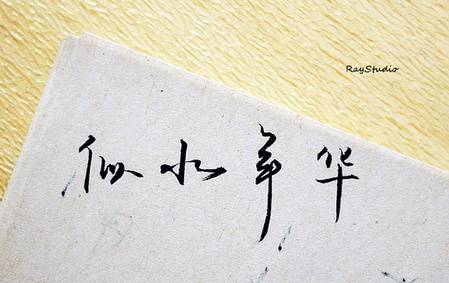 RayStudio
似水年华